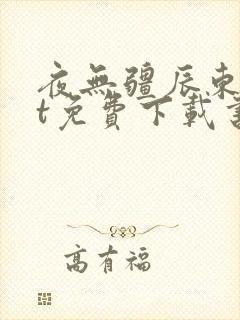 夜無疆辰東
t免費下載
高有福